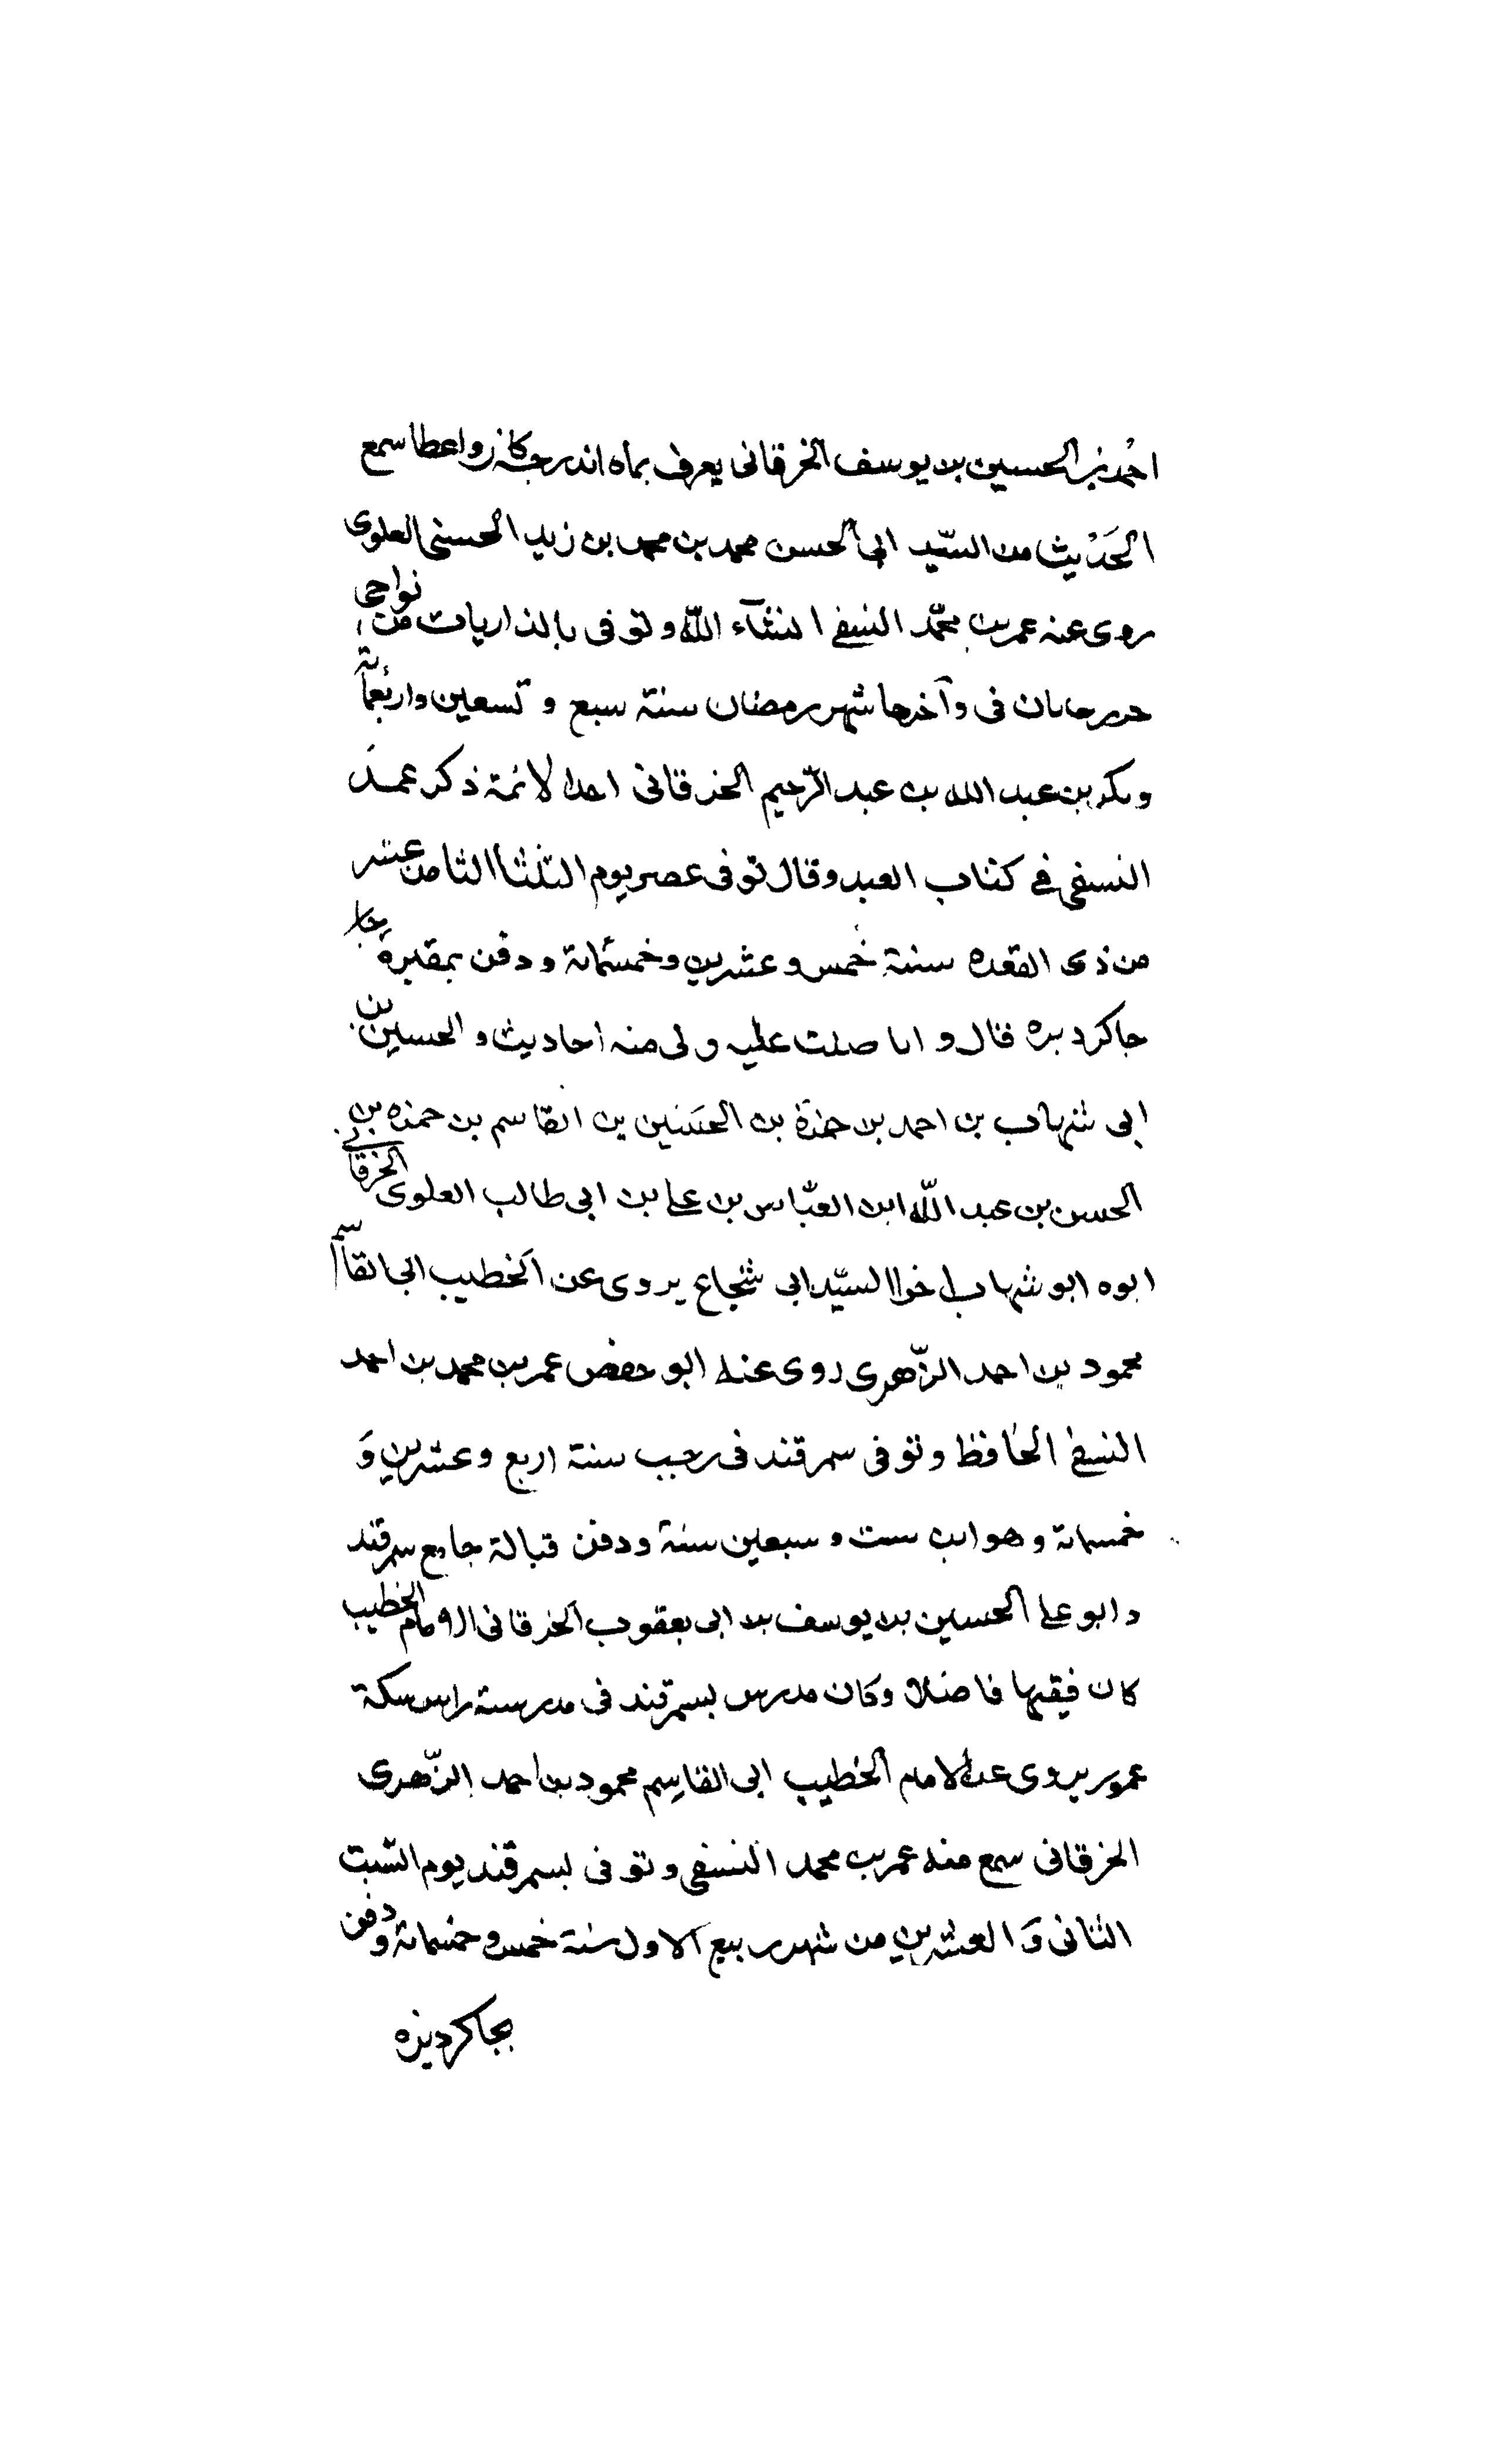 احمد بن الحسين بن يوسف الخرقانى يعرف بماه اندرجه كان واعظا سمع
الحَدْيث من السيّد ابى الحسن محمد بن محمد بن زيد الحسنى العلوى
روى عنه عمر بن محمّد النسفى انشآء الله وتوفى بالذاريات من نواحى
فى وآخرها شهر رمضان سنة سبع و تسعين واربعمائة
وبكر بن عبد الله بن عبد الرّحيم الخرقانى احد الائمة ذكر عمر
النسفى فى كتاب العبد وقال توفى عصر يوم الثلثا الثامن عشر
من ذى القعده سنة خمس و عشرين وخمسمائة و دفن بمقبرة
جاكرديره قال و انا صليت عليه و لى منه احاديث و الحسين بن
ابى شهاب بن احمد بن حمزة بن الحسَين بن القاسم بن حمزه بن
الحسن بن عبد اللّه ابن العبّاس بن على بن ابى طالب العلوى الخرقانى
ابوه ابو شهاب اخو السيّد ابى شجاع يروى عن الخطيب ابى القاسم
محمود بن احمد الزّهرى روى عنه ابو حفص عمر بن محمد بن احمد
النسفى الحافظ وتوفى سمرقند فى رجب سنة اربع وعشرين وَ
خمسمائة وهو ابن ست و سبعين سنة ودفن قبالة جامع سمرقند
و ابو على الحسين بن يوسف بن ابى يعقوب الخرقانى الامام الخطيب
كان فقيها فاضلا وكان مدرس بسمرقند فى مدرسة راس سكة
عمور يروى عن الامام الخطيب ابى القاسم محمود بن احمد الزّهرى
الخرقانى سمع منه عمر بن محمد النسفى وتوفى بسمرقند يوم السّبت
الثانى وَ العشرين من شهر ربيع الاول سنة خمس وخمسمائة ودفن
بجاكرديزه